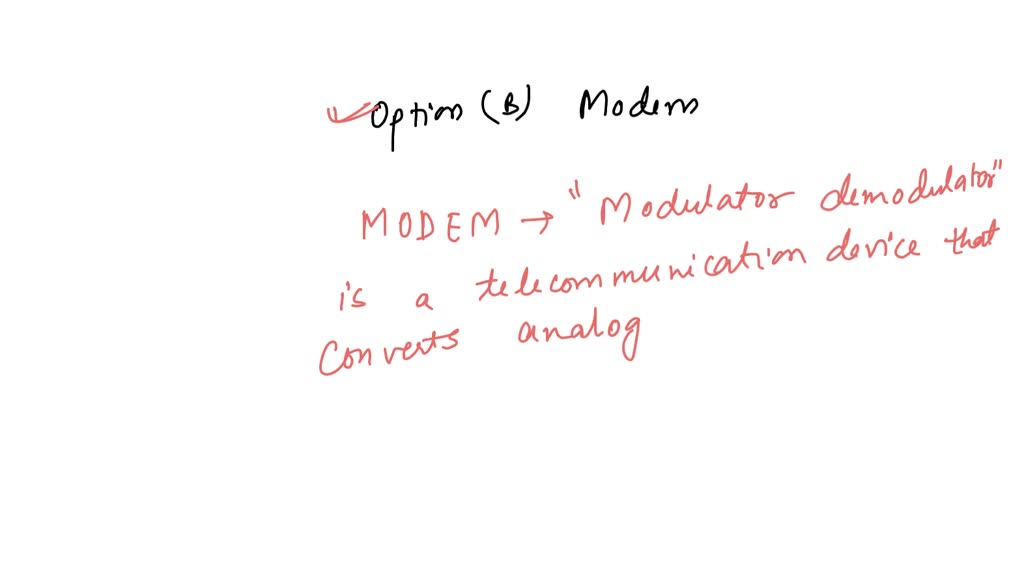 Option (B) Modem
MODEM → "Modulator demodulator"
is a telecommunication device that
Converts analog